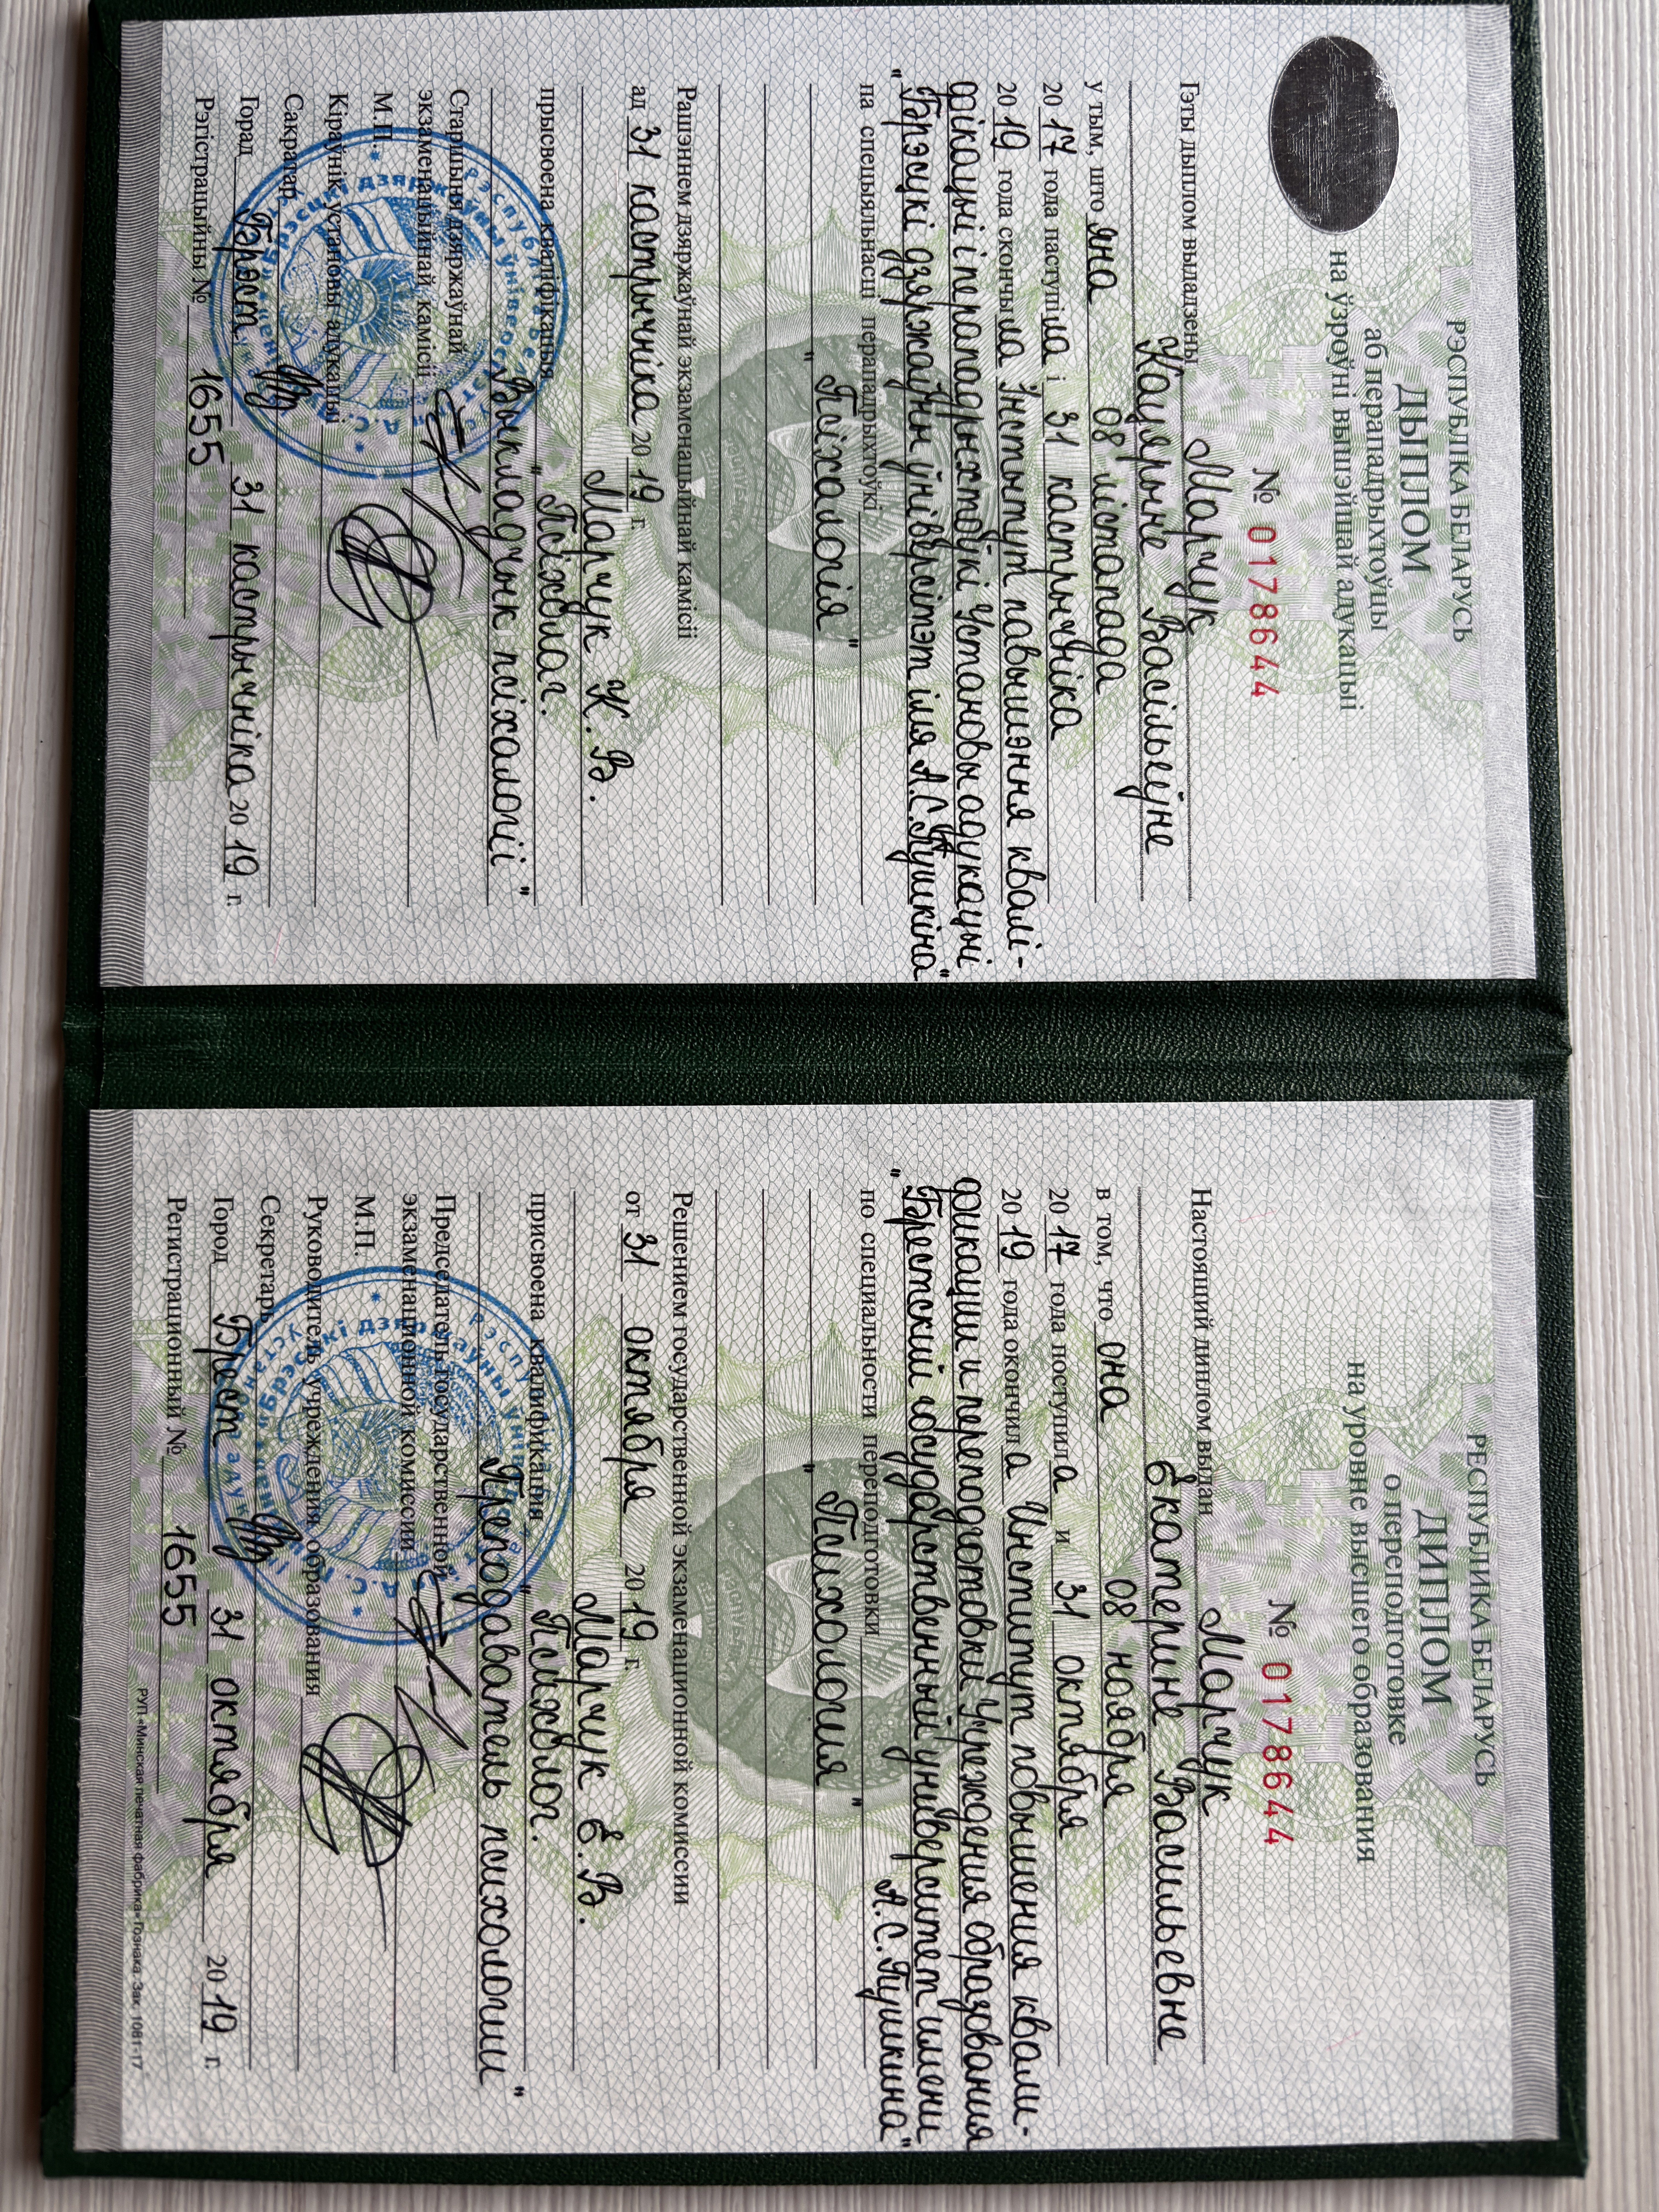 РЭСПУБЛІКА БЕЛАРУСЬ
ДЫПЛОМ
аб перападрыхтоўцы
на ўзроўні вышэйшай адукацыі
№ 0178644
Гэты дыплом выдадзены Марчук
Кацярыне Васільеўне
у тым, што яна 08 лістапада
20 17 года паступіла і 31 кастрычніка
20 19 года скончыла Інстытут павышэння квалі-
фікацыі і перападрыхтоўкі Установы адукацыі
"Брэсцкі дзяржаўны ўніверсітэт імя А.С.Пушкіна"
па спецыяльнасці перападрыхтоўкі
"Псіхалогія"
Рашэннем дзяржаўнай экзаменацыйнай камісіі
ад 31 кастрычніка 20 19 г.
Марчук К. В.
прысвоена кваліфікацыя "Псіхолаг.
Выкладчык псіхалогіі"
Старшыня дзяржаўнай
экзаменацыйнай камісіі
М.П.
Кіраўнік установы адукацыі
Сакратар
Горад Брэст 31 кастрычніка 20 19 г.
Рэгістрацыйны № 1655
РЕСПУБЛИКА БЕЛАРУСЬ
ДИПЛОМ
о переподготовке
на уровне высшего образования
№ 0178644
Настоящий диплом выдан Марчук
Екатерине Васильевне
в том, что она 08 ноября
20 17 года поступила и 31 октября
20 19 года окончила Институт повышения квали-
фикации и переподготовки Учреждения образования
"Брестский государственный университет имени
по специальности переподготовки А.С.Пушкина"
"Психология"
Решением государственной экзаменационной комиссии
от 31 октября 20 19 г.
Марчук Е. В.
присвоена квалификация "Психолог.
Преподаватель психологии"
Председатель государственной
экзаменационной комиссии
М.П.
Руководитель учреждения образования
Секретарь
Город Брест 31 октября 20 19 г.
Регистрационный № 1655
РУП «Минская печатная фабрика» Гознака Зак. 1081-17